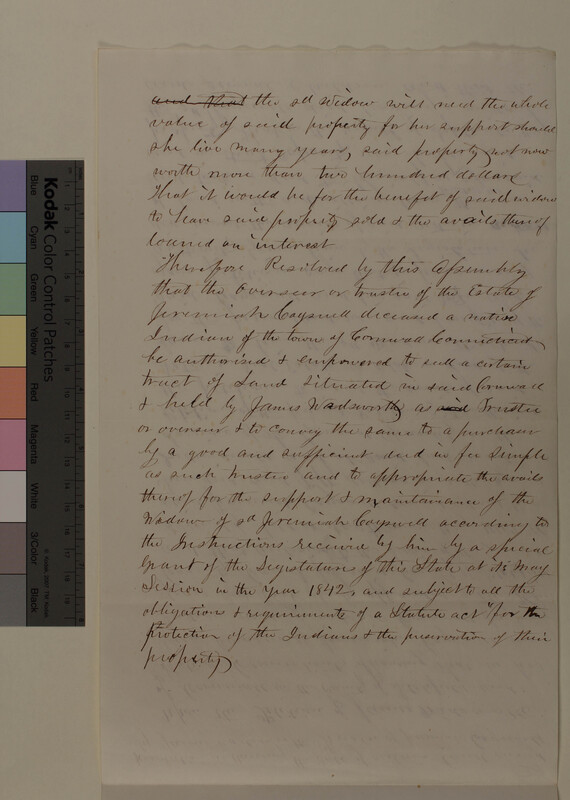 and that the sd widow will need the whole
value of said property for her support should
she live many years, said property not now
worth more than two hundred dollars
That it would be for the benefit of said widow
to have said property sold & the avails thereof
loaned on interest
Therefore Resolved by this Assembly
that the Overseer or trustee of the Estate of
Jeremiah Cogswell deceased a native
Indian of the town of Cornwall Connecticut
be authorised & empowered to sell a certain
tract of Land situated in said Cornwall
& held by James Wadsworth as said Trustee
or overseer & to convey the same to a purchaser
by a good and sufficient deed in fee simple
as such trustee and to appropriate the avails
thereof for the support & maintainance of the
Widow of sd Jeremiah Cogswell according to
the Instructions received by him by a special
grant of the Legislature of this State at its May
Session in the year 1842, and subject to all the
obligations & requirements of a Statute act "for the
Protection of the Indians & the preservation of their
property
Kodak Color Control Patches
Blue
Cyan
Green
Yellow
Red
Magenta
White
3/Color
Black